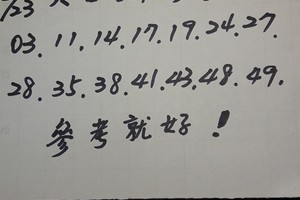 03. 11. 14. 17. 19. 24. 27.
28. 35. 38. 41. 43. 48. 49.
參考就好！